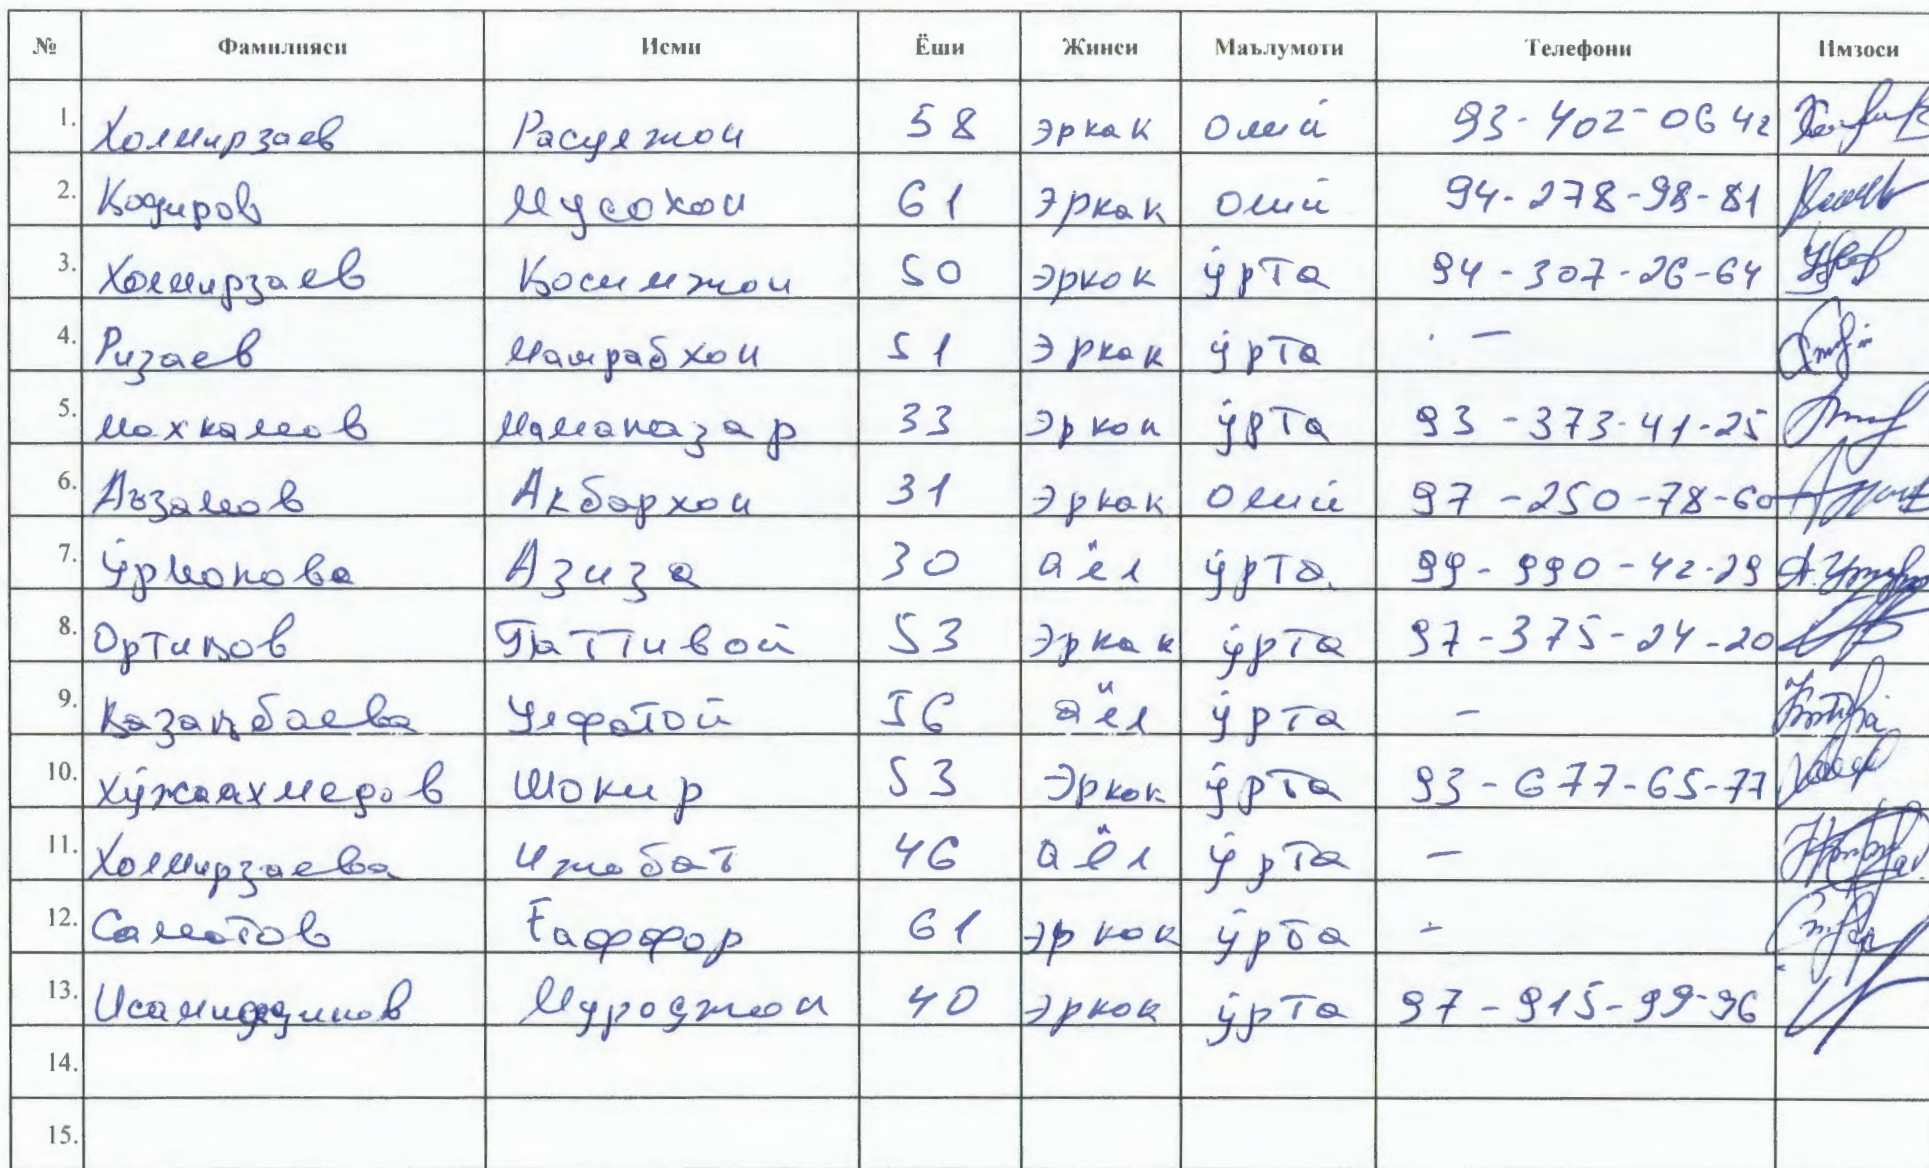 № Фамилияси Исми Ёши Жинси Маълумоти Телефони Имзоси
1. Холмирзаев Расулжон 58 эркак Олий 93-402-06 42
2. Қодиров Мусохон 61 Эркак Олий 94-278-98-81
3. Холмирзаев Қосимжон 50 эркак ўрта 94-307-26-64
4. Ризаев Машрабхон 51 Эркак ўрта -
5. Махкамов Маманазар 33 Эркак ўрта 93-373-41-25
6. Аъзамов Акбархон 31 Эркак Олий 97-250-78-60
7. Ўрмонова Азиза 30 аёл ўрта 99-990-42-29
8. Ортиқов 53 Эркак ўрта 97-375-24-20
9. Қазақбаева Улфатой 56 аёл ўрта -
10. Хўжаахмедов Шокир 53 Эркак ўрта 93-677-65-77
11. Холмирзаева Ижобат 46 аёл ўрта -
12. Саматов Ғаффор 61 эркак ўрта -
13. Исамиддинов Муроджон 40 эркак ўрта 97-915-99-96
14.
15.